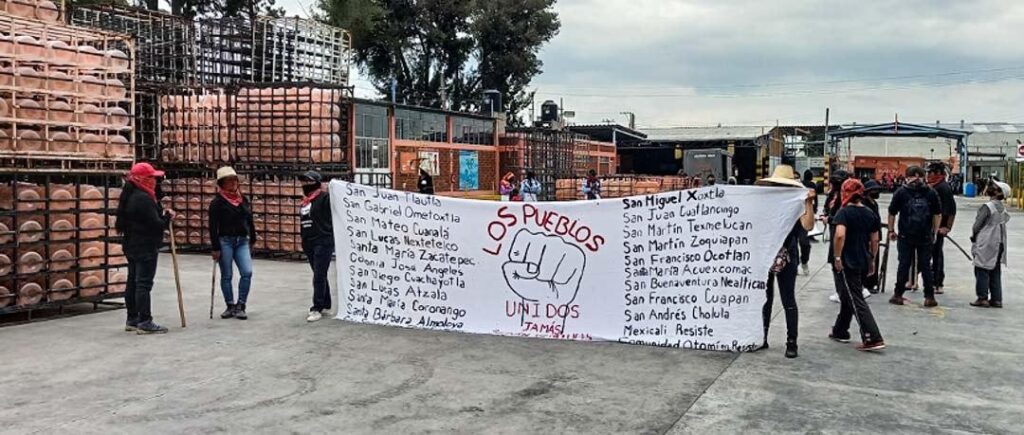 San Juan Tlautla
San Gabriel Ometoxtla
San Mateo Cuanalá
San Lucas Nextetelco
Santa María Zacatepec
Colonia José Angeles
San Diego Cuachayotla
San Lucas Atzala
Santa María Coronango
Santa Bárbara Almoloya
LOS PUEBLOS
UNIDOS
JAMÁS
San Miguel Xoxtla
San Juan Cuatlancingo
San Martín Texmelucan
San Martín Zoquiapan
San Francisco Ocotlan
Santa María Acuexcomac
San Buenaventura Nealtican
San Francisco Cuapan
San Andrés Cholula
Mexicali Resiste
Comunidad Otomí en